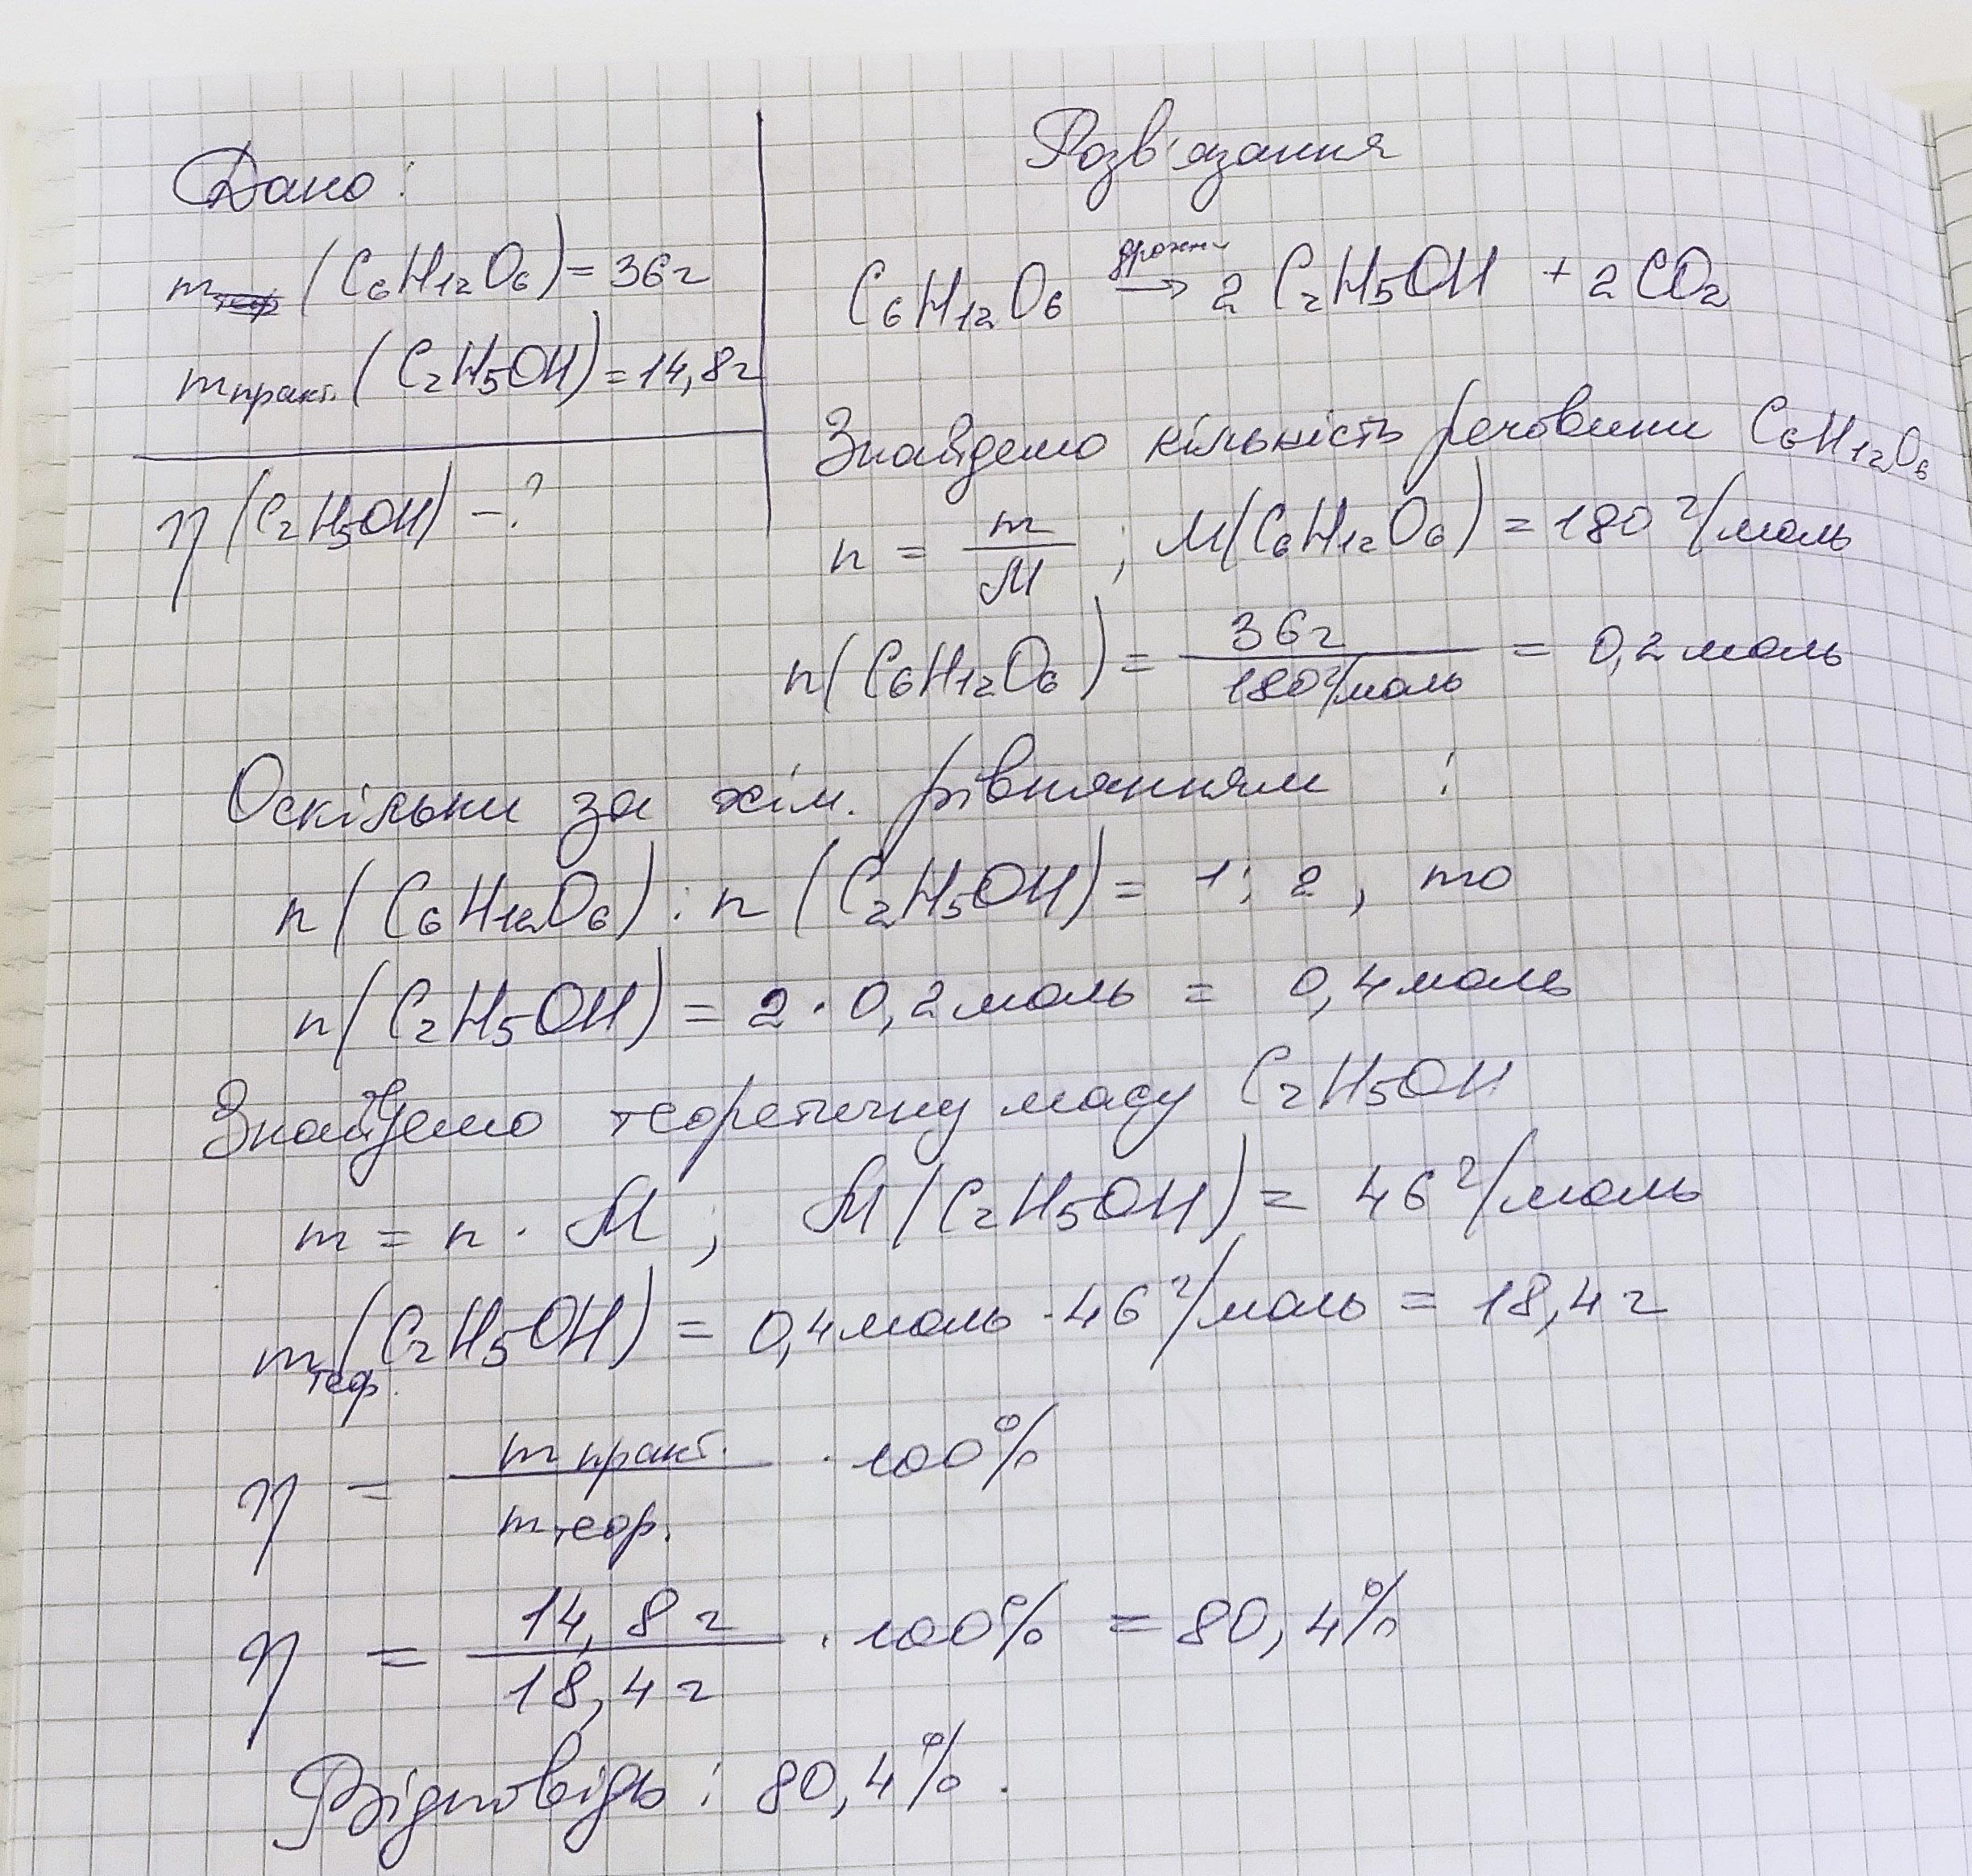 Дано:
m (C₆H₁₂O₆) = 36г
m практ. (C₂H₅OH) = 14,8г
η (C₂H₅OH) - ?
Розв'язання
C₆H₁₂O₆ дрожжі → 2 C₂H₅OH + 2CO₂
Знайдемо кількість речовини C₆H₁₂O₆
n = m/M ; M(C₆H₁₂O₆) = 180 г/моль
n(C₆H₁₂O₆) = 36г / 180 г/моль = 0,2 моль
Оскільки за хім. рівнянням :
n(C₆H₁₂O₆) : n (C₂H₅OH) = 1 : 2 , то
n(C₂H₅OH) = 2 · 0,2 моль = 0,4 моль
Знайдемо теоретичну масу C₂H₅OH
m = n · M ; M(C₂H₅OH) = 46 г/моль
m теор. (C₂H₅OH) = 0,4 моль · 46 г/моль = 18,4 г
η = m практ. / m теор. · 100%
η = 14,8 г / 18,4 г · 100% = 80,4%
Відповідь : 80,4% .